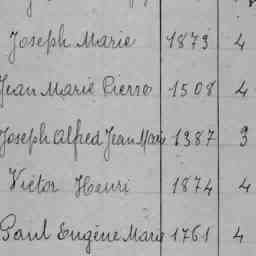 Joseph Marie 1873 4
Jean Marie Pierre 1508 4
Joseph Alfred Jean Marie 1387 3
Victor Henri 1874 4
Paul Eugène Marie 1761 4